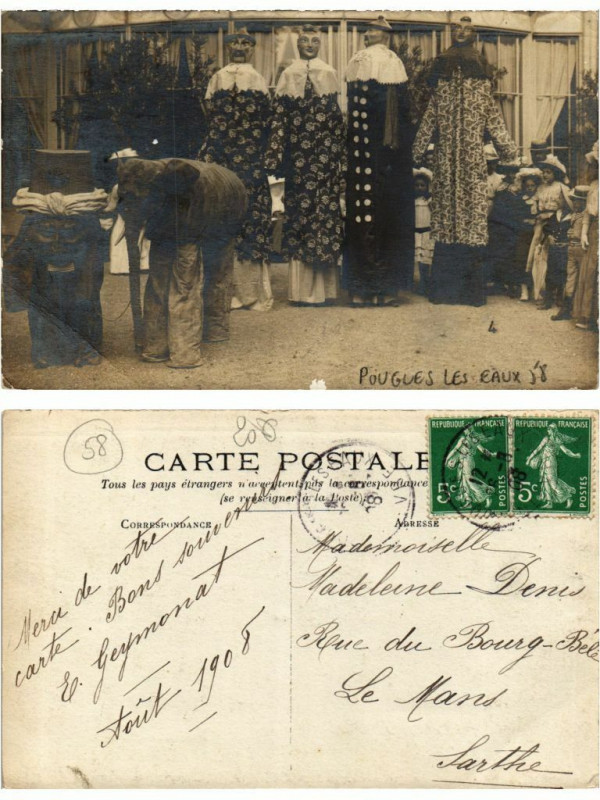 4
POUGUES LES EAUX 58
58
208
CARTE POSTALE
Tous les pays étrangers n'acceptent pas la correspondance
(se renseigner à la Poste)
CORRESPONDANCE
ADRESSE
REPUBLIQUE FRANÇAISE
5c
POSTES
REPUBLIQUE FRANÇAISE
5c
POSTES
Merci de votre
carte. Bons souvenirs
E. Geymonat
Août 1908
Mademoiselle
Madeleine Denis
Rue du Bourg-Belé
Le Mans
Sarthe